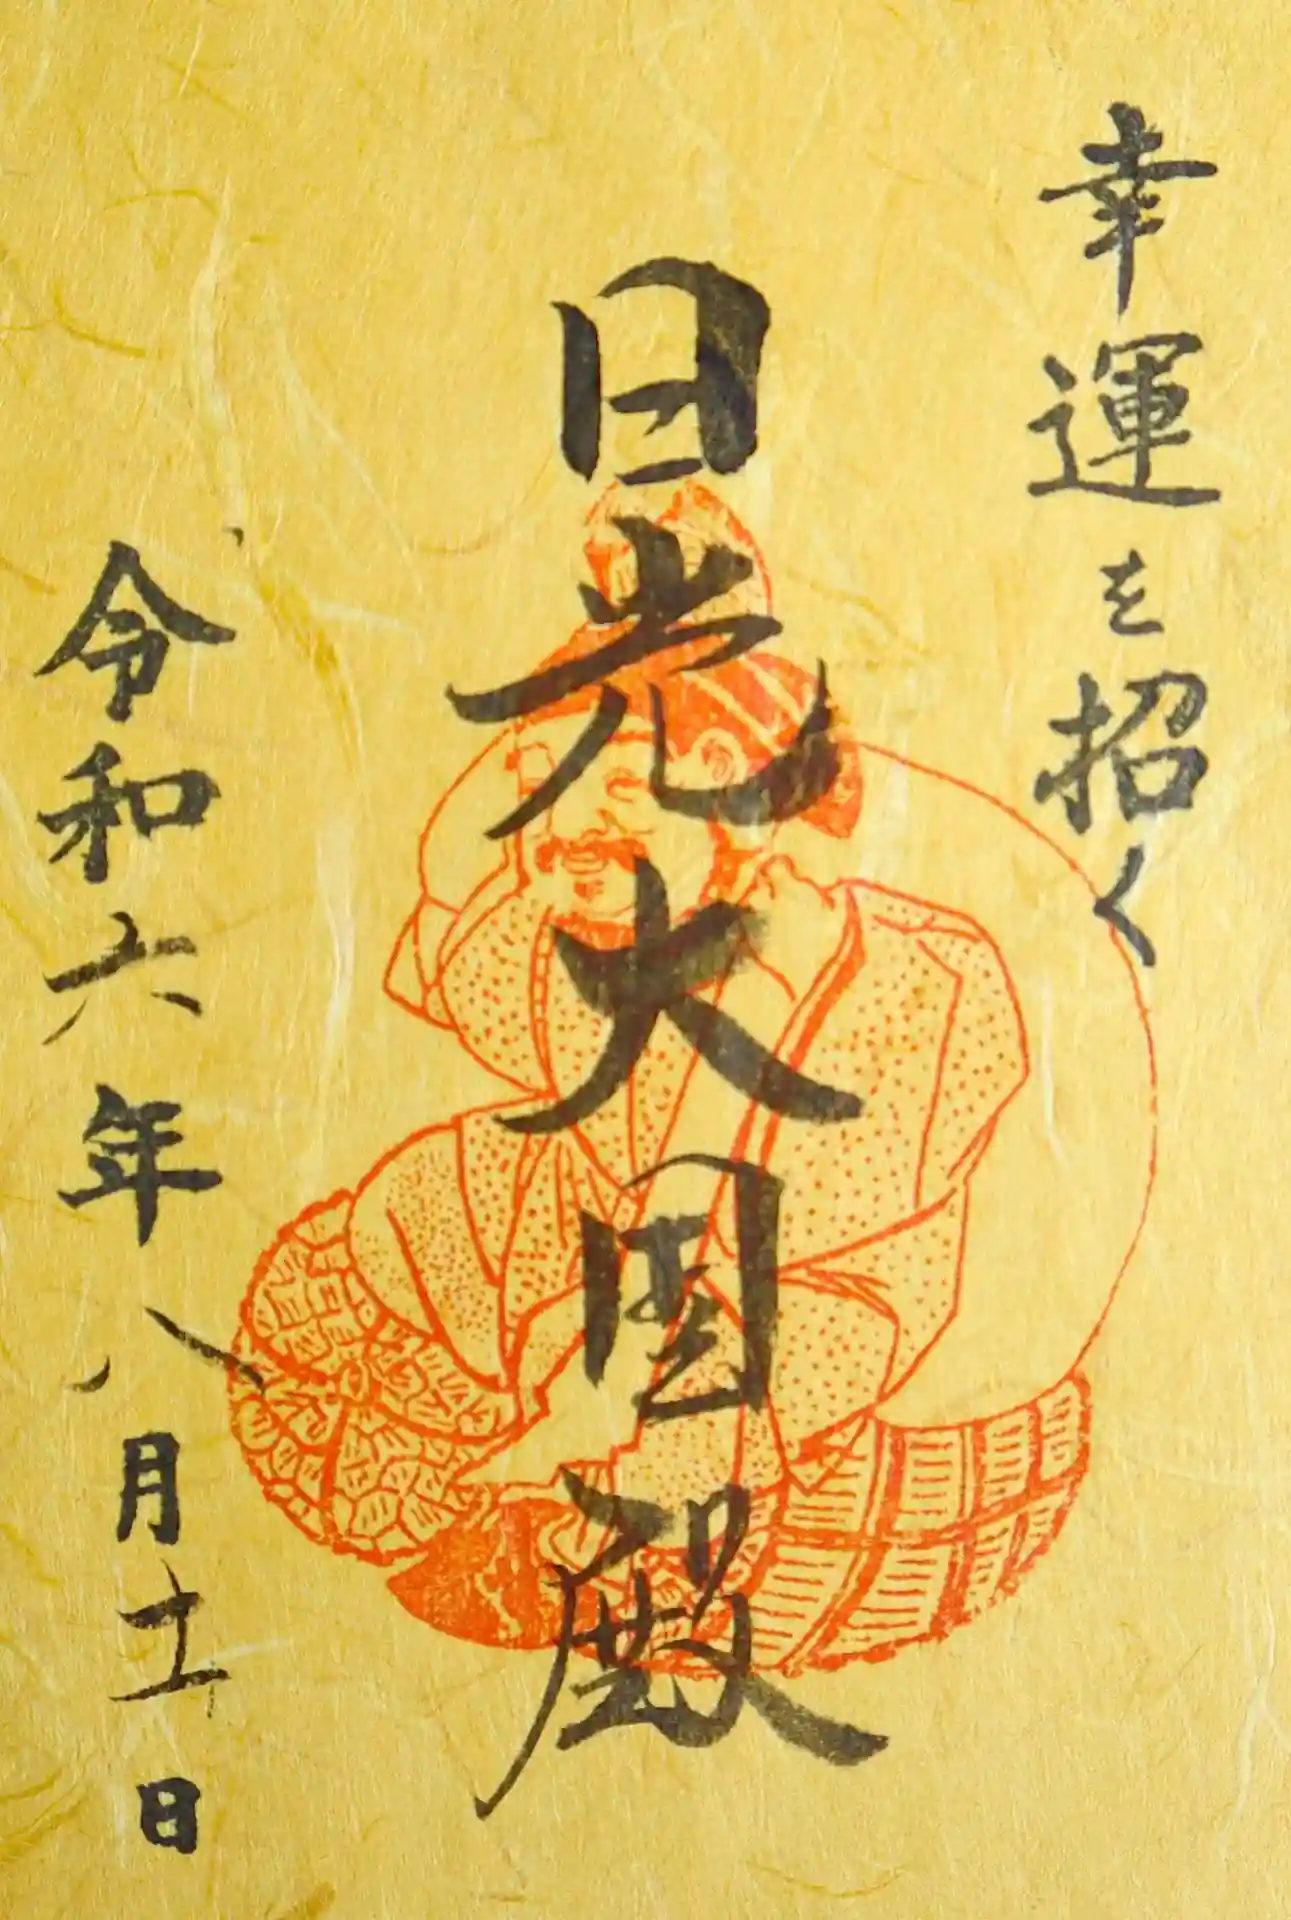 幸運を招く
日光大国殿
令和六年八月十一日